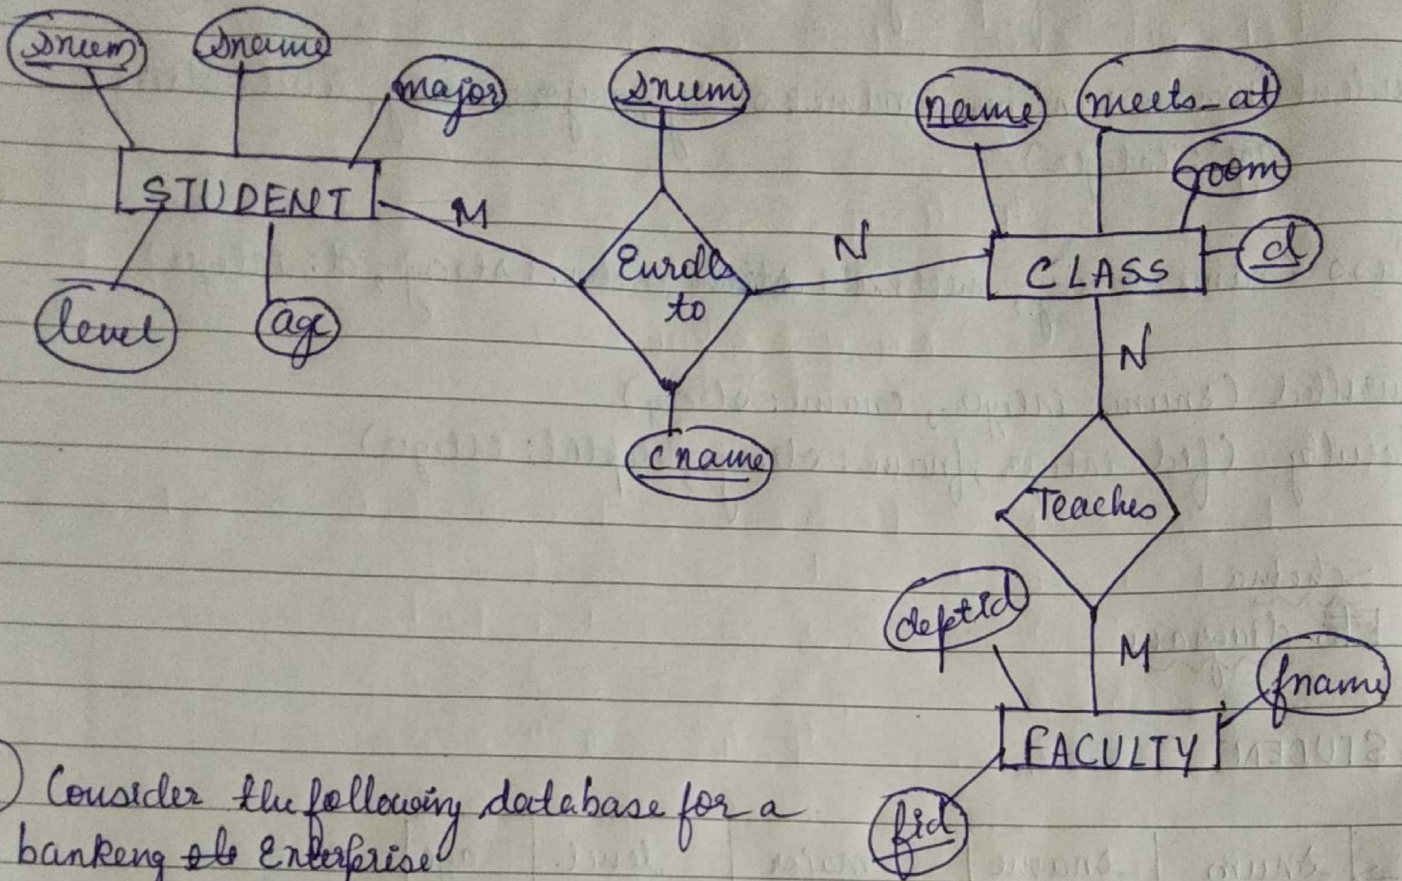 snum
sname
major
STUDENT
level
age
M
snum
Enrolls
to
cname
N
name
meets_at
room
d
CLASS
N
Teaches
M
deptid
fname
FACULTY
fid
Consider the following database for a
banking Enterprise